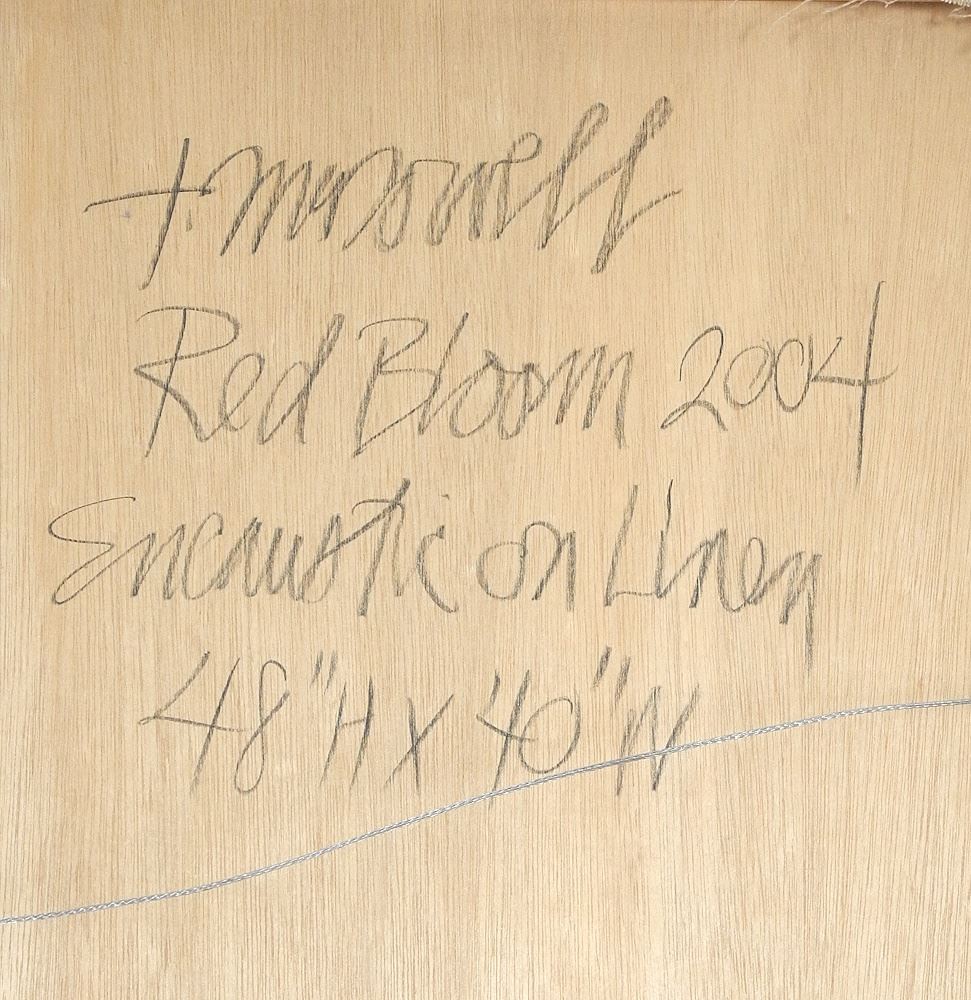 Red Bloom 2004
Encaustic on Linen
48"H X 40"W